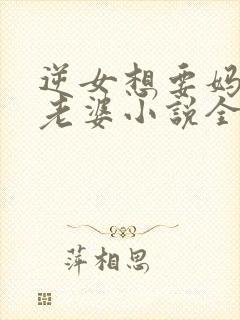 逆女想要妈
老婆小说全
萍相思